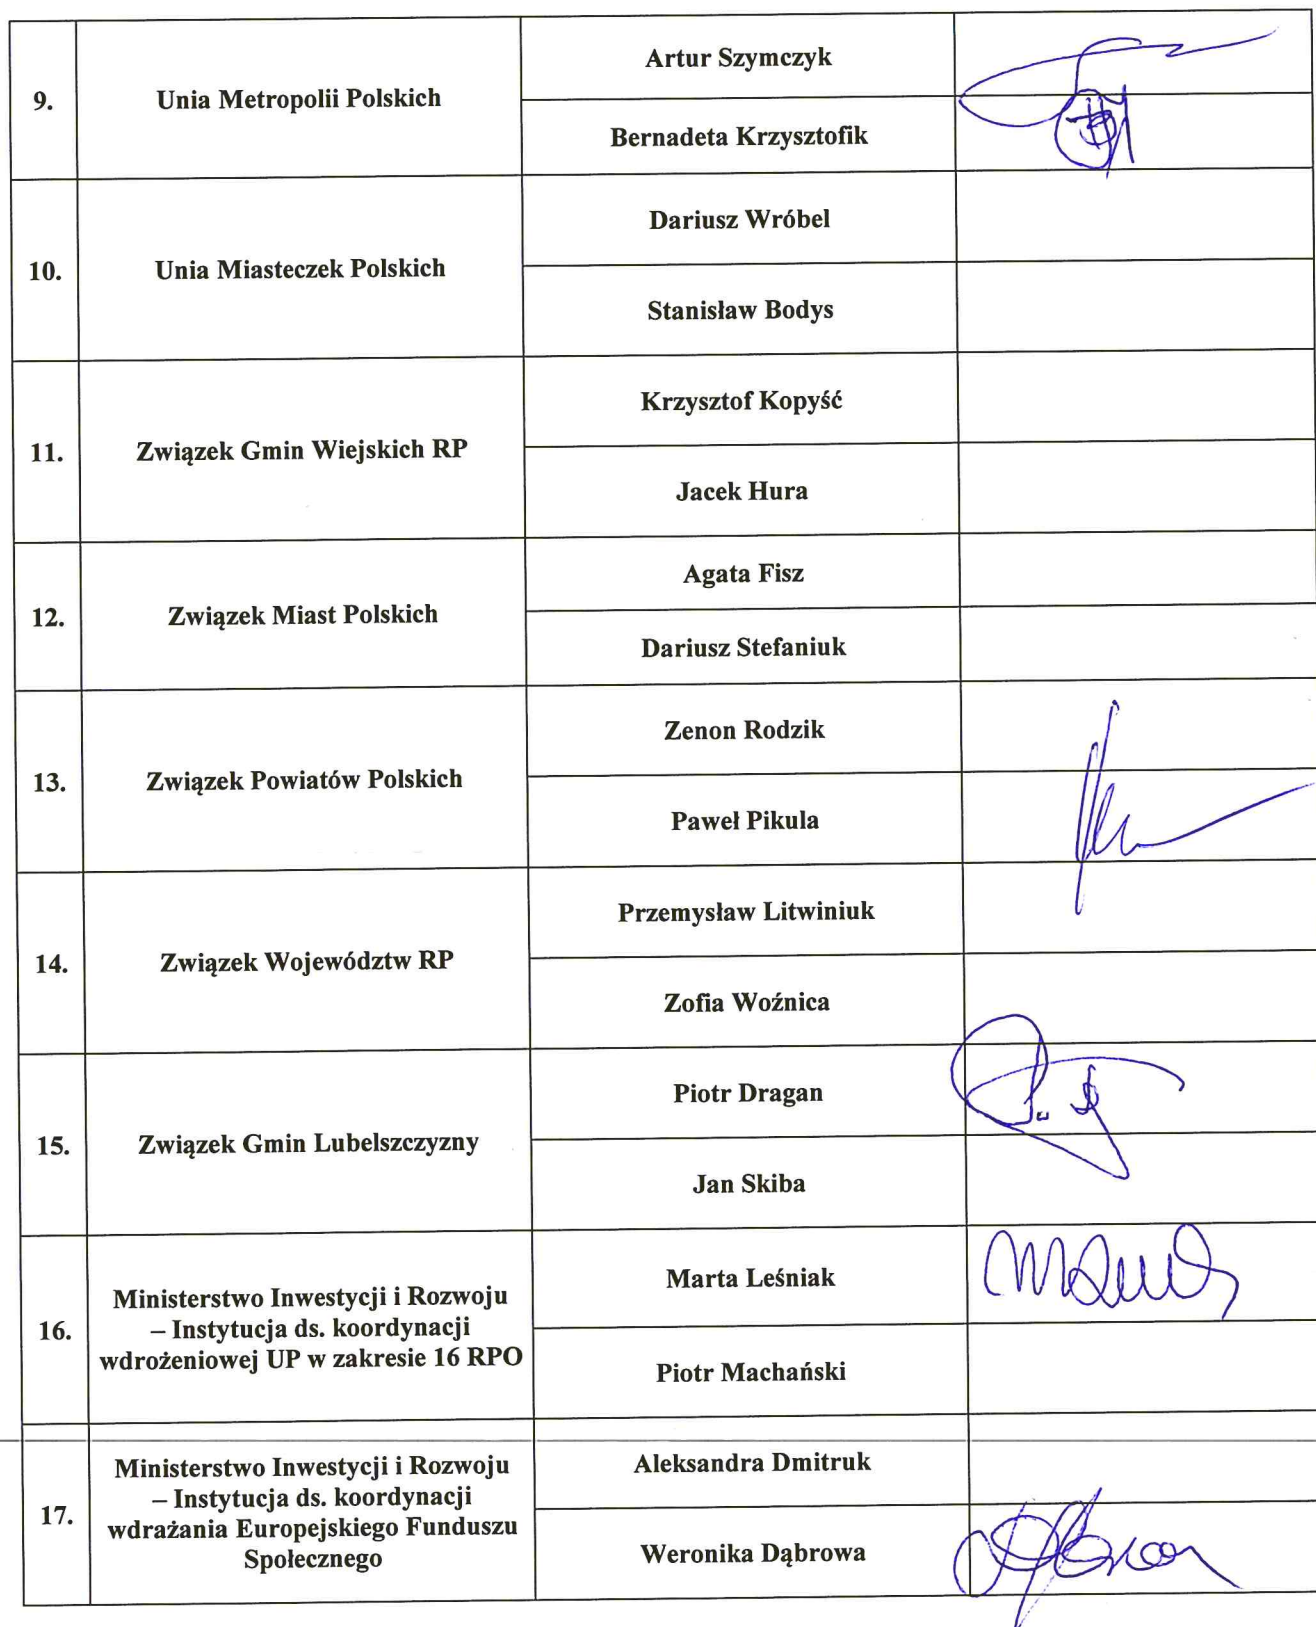 9.
Unia Metropolii Polskich
Artur Szymczyk
Bernadeta Krzysztofik
10.
Unia Miasteczek Polskich
Dariusz Wróbel
Stanisław Bodys
11.
Związek Gmin Wiejskich RP
Krzysztof Kopyść
Jacek Hura
12.
Związek Miast Polskich
Agata Fisz
Dariusz Stefaniuk
13.
Związek Powiatów Polskich
Zenon Rodzik
Paweł Pikula
14.
Związek Województw RP
Przemysław Litwiniuk
Zofia Woźnica
15.
Związek Gmin Lubelszczyzny
Piotr Dragan
Jan Skiba
16.
Ministerstwo Inwestycji i Rozwoju
– Instytucja ds. koordynacji
wdrożeniowej UP w zakresie 16 RPO
Marta Leśniak
Piotr Machański
17.
Ministerstwo Inwestycji i Rozwoju
– Instytucja ds. koordynacji
wdrażania Europejskiego Funduszu
Społecznego
Aleksandra Dmitruk
Weronika Dąbrowa